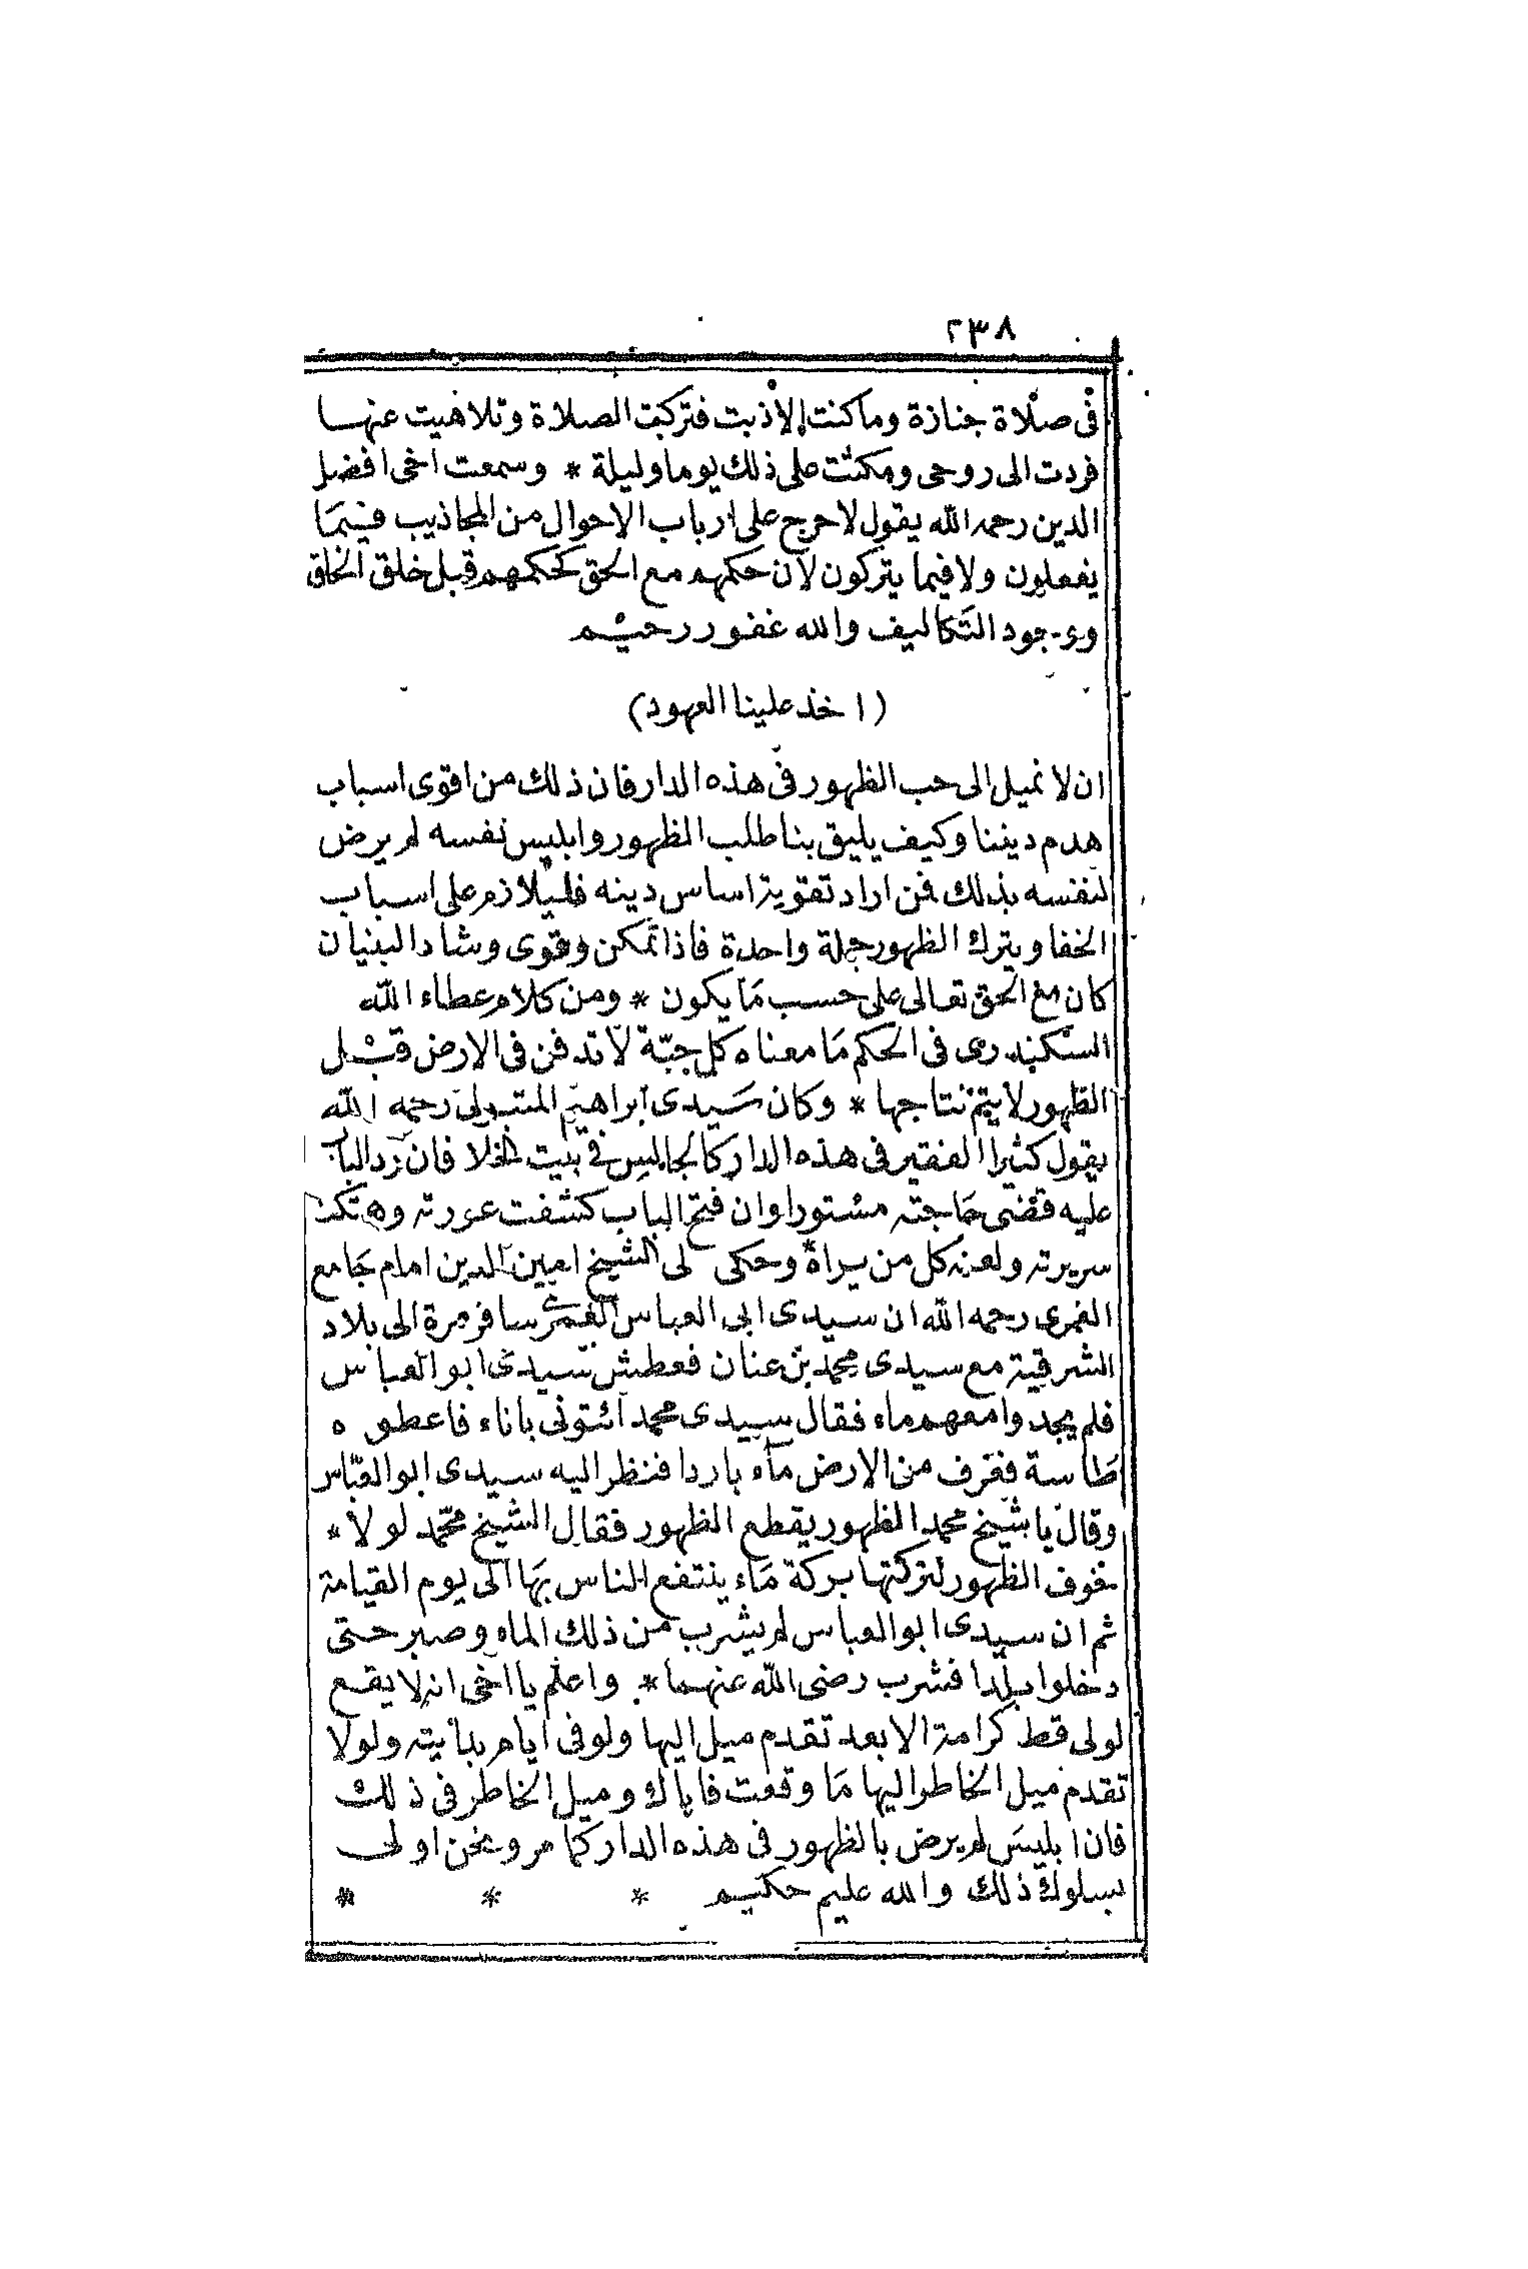 ٢٣٨
في صلاة جنازة وما كنت الا ذبت فتركت الصلاة وتلاهيت عنها
فردت الى روحى ومكثت على ذلك يوما وليلة * وسمعت اخى افضل
الدين رحمه الله يقول لا حرج على ارباب الاحوال من المجاذيب فيما
يفعلون ولا فيما يتركون لان حكمهم مع الحق كحكمهم قبل خلق الخلق
ووجود التكاليف والله غفور رحيم
(اخذ علينا العهود)
ان لا نميل الى حب الظهور فى هذه الدار فان ذلك من اقوى اسباب
هدم ديننا وكيف يليق بنا طلب الظهور وابليس نفسه لم يرض
لنفسه بذلك فمن اراد تقوية اساس دينه فليلازم على اسباب
الخفا ويترك الظهور جملة واحدة فاذا تمكن وقوى وشاد البنيان
كان مع الحق تعالى على حسب ما يكون * ومن كلام عطاء الله
السكندرى فى الحكم ما معناه كل حبة لا تدفن فى الارض قبل
الظهور لا يتم نتاجها * وكان سيدى ابراهيم المتبولى رحمه الله
يقول كثيرا الفقير فى هذه الدار كالجالس فى بيت الخلا فان رد الباب
عليه قضى حاجته مستورا وان فتح الباب كشفت عورته وهتكت
سريرته ولعنه كل من يراه * وحكى لى الشيخ امين الدين امام جامع
الغمرى رحمه الله ان سيدى ابى العباس الغمرى سافر مرة الى بلاد
الشرقية مع سيدى محمد بن عنان فعطش سيدى ابو العباس
فلم يجدوا معهم ماء فقال سيدى محمد ائتونى باناء فاعطوه
طاسة فغرف من الارض ماء باردا فنظر اليه سيدى ابو العباس
وقال يا شيخ محمد الظهور يقطع الظهور فقال الشيخ محمد لولا *
خوف الظهور لتركتها بركة ماء ينتفع الناس بها الى يوم القيامة
ثم ان سيدى ابو العباس لم يشرب من ذلك الماء وصبر حتى
دخلوا بلدا فشرب رضى الله عنهما * واعلم يا اخى انه لا يقع
لولى قط كرامة الا بعد تقدم ميل اليها ولو فى ايام بدايته ولولا
تقدم ميل الخاطر اليها ما وقعت فاياك وميل الخاطر فى ذلك
فان ابليس لم يرض بالظهور فى هذه الدار كما مر ونحن اولى
بسلوك ذلك والله عليم حكيم * * *